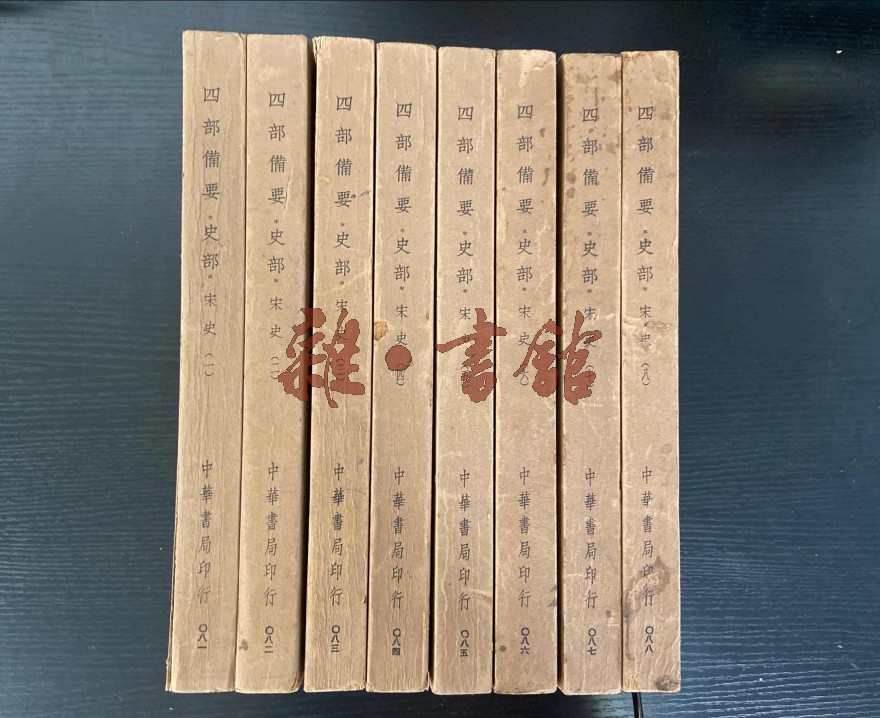 四部備要*史部*宋史(一) 中華書局印行 〇八一
四部備要*史部*宋史(二) 中華書局印行 〇八二
四部備要*史部*宋史(三) 中華書局印行 〇八三
四部備要*史部*宋史(四) 中華書局印行 〇八四
四部備要*史部*宋 中華書局印行 〇八五
四部備要*史部*宋史(六) 中華書局印行 〇八六
四部備要*史部*宋史 中華書局印行 〇八七
四部備要*史部*宋史(八) 中華書局印行 〇八八
雜·書館